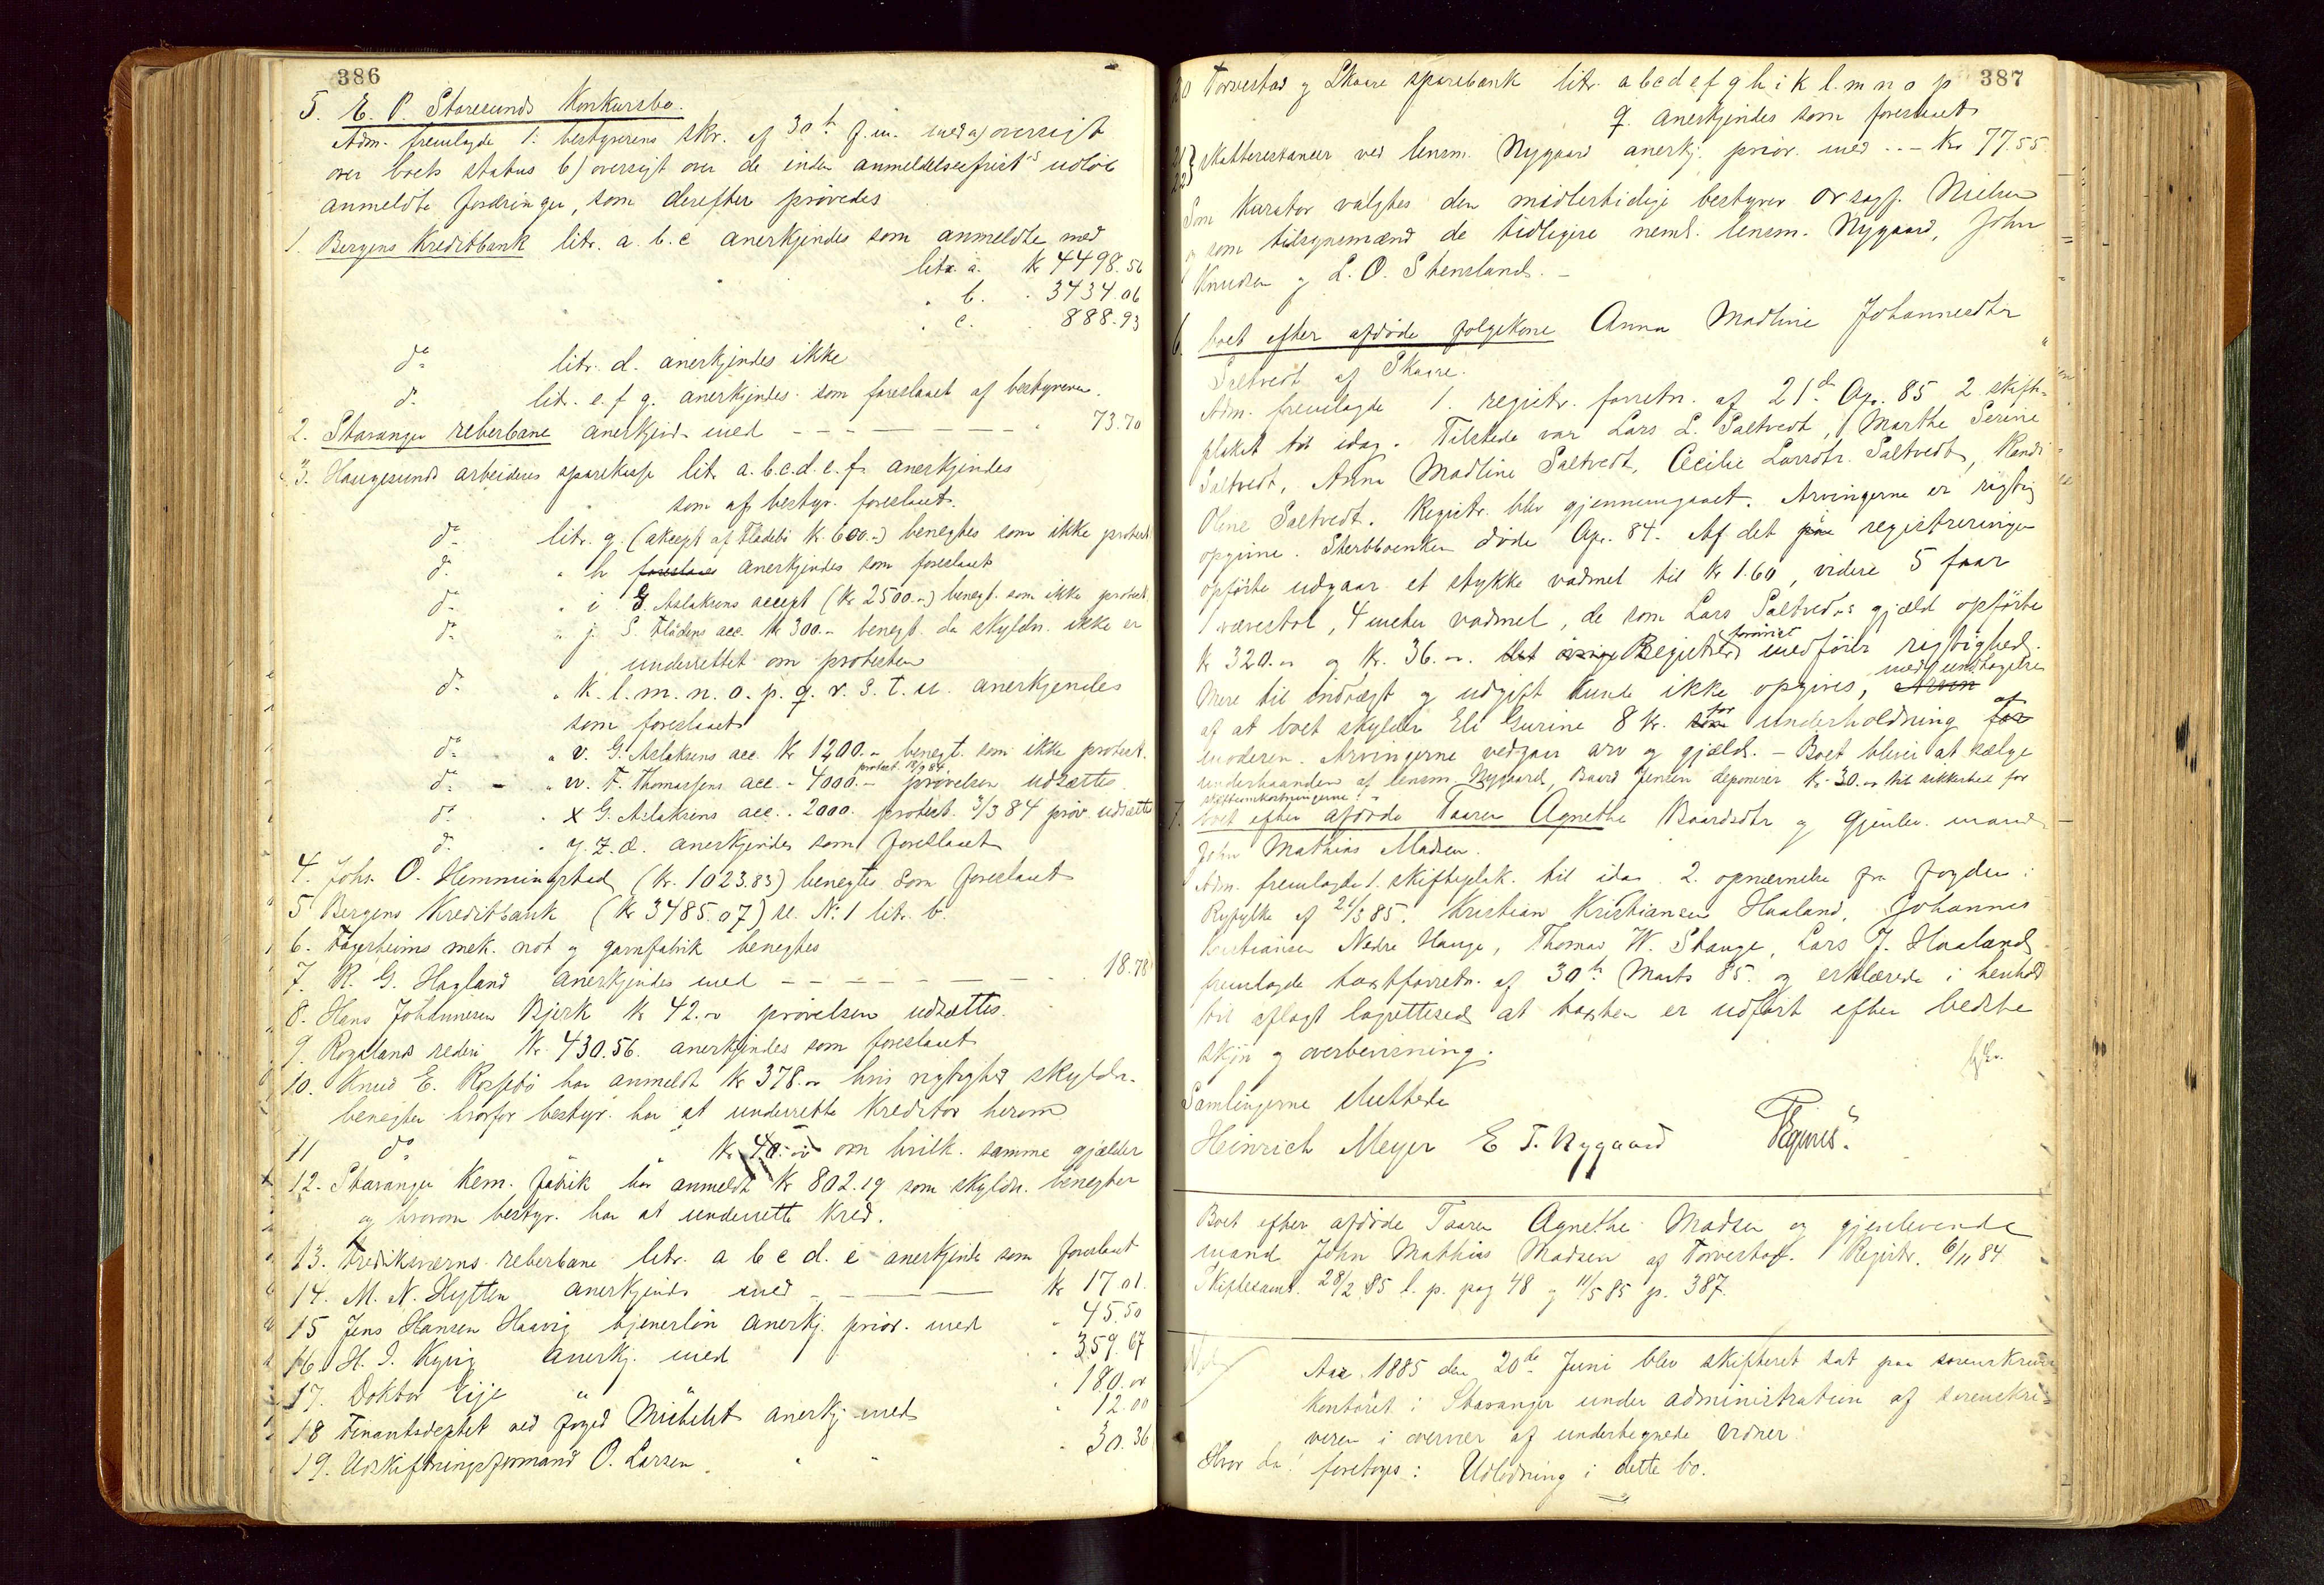 386
5. E. P. Storesunds Konkursbo.
Adm. fremlagde 1. bestyrerens skr. af 30te f.m. med a) oversigt
over boets status b) oversigt over de inden anmeldelsesfrist's udlöb
anmeldte fordringer, som derefter prövedes
1. Bergens Kreditbank litr. a. b. c anerkjendes som anmeldte med
litr. a. Kr 4498.56
" b. " 3434.06
" c. 888.93
do litr. d. anerkjendes ikke
do litr. e. f g. anerkjendes som foreslaaet af bestyreren.
2. Stavanger reberbane anerkjend. med - - - - - - " 73.70
3. Haugesunds arbeideres sparekasse litr. a. b. c. d. e. f. anerkjendes
som af bestyr. foreslaaet.
do litr. g. (aksept af Fladebö Kr. 600.-) benegtes som ikke protest.
do " h foreslaaes anerkjendes som foreslaaet
do " i G. Aslaksens accept (Kr 2500.-) benegt. som ikke protest.
do " j. S. Flådens acc. Kr 300.- benegt. da skyldn. ikke er
underrettet om protesten
do " k. l. m. n. o. p. q. r. s. t. u. anerkjendes
som foreslaaet
do " v. G. Aslaksens acc. Kr 1200.- benegt. som ikke protest.
do - " w. F. Thomassens acc. - 4000.- protest. 12/9 84 prövelsen udsættes
do " x G. Aslaksens acc. . 2000. protest. 3/3 84 pröv. udsættes
do " y. z. æ. anerkjendes som foreslaaet
4. Johs. O. Hemmingstad (Kr. 1023.83) benegtes som foreslaaet
5 Bergens Kreditbank (Kr 3485.07) se No 1 litr. b.
6. Fagerheims mek. not og garnfabrik benegtes
7. R. G. Hagland anerkjendes med - - - - - - - 18.78
8. Hans Johannesen Bjerk Kr 42.- prövelsen udsættes.
9. Rogalands rederi Kr. 430.56. anerkjendes som foreslaaet
10. Knud E. Rossebö har anmeldt Kr 378.- hvis rigtighed skyldn.
benegter hvorfor bestyr. har at underrette kreditor herom
11 do " Kr 40.- om hvilk. samme gjælder
12. Stavanger Kem. fabrik har anmeldt Kr 802.19 som skyldn. benegter
og hvorom bestyr. har at underrette Kred.
13. Fredriksværns reberbane litr. a b c d. e anerkjendes som foreslaaet
14. M. N. Hytten anerkjendes med - - - Kr 17.01.
15 Jens Hansen Haavig tjenerlön anerkj. prior. med " 45.50
16. H. I. Kyvig anerkj. med " 359.67
17. Doktor Eije " " 180.00
18 Finantsdeptet ved foged Michelet anerkj. med " 12.00
19. Udskiftningsformand O. Larsen " " " 30.36
387
20 Torvestad og Skaare sparebank litr. a b c d e f g h i k l. m n o p
q. anerkjendes som foreslaaet
21 22} skatterestancer ved lensm. Nygaard anerkj. prior. med .. - Kr 77.55.
Som Kurator valgtes den midlertidige bestyrer orsagf. Nielsen
og som tilsynsmænd de tidligere neml. lensm. Nygaard, John
Knudsen og L. O. Stensland. -
6. boet efter afdöde folgekone Anna Madline Johannesdtr
Saltvedt af Skaare.
Adm. fremlagde 1. registr. forretn. af 21de Apr. 85 2. skifte-
plakat til idag. Tilstede var Lars L. Saltvedt, Marthe Serine
Saltvedt, Anna Madline Saltvedt, Cecilie Larsdtr. Saltvedt, Randi
Oline Saltvedt. Registr. blev gjennemgaaet. Arvingerne er rigtig
opgivne. Sterbboenken döde Apr. 84. Af det paa registreringen
opförte udgaar et stykke vadmel til Kr 1.60, videre 5 faar
1 vævestol, 4 meter vadmel, de som Lars Saltvedts gjæld opförte
Kr 320.- og Kr. 36.-. Det övrige Registreret forövrigt medförer rigtighed.
Mere til indtægt og udgift kunde ikke opgives, Arvin med undtagelse
af at boet skylder Eli Gurine 8 Kr. som for underholdning for af
moderen. Arvingerne vedgaar arv og gjæld. - Boet bliver at sælge
underhaanden af lensm. Nygaard, Baard Jensen deponerer Kr. 30.- til sikkerhed for
skifteomkostningerne. -
7. boet efter afdöde Taaren Agnethe Baardsdtr og gjenlev. mand
John Mathias Madsen.
Adm. fremlagde 1. skifteplak. til idag 2. opnævnelse fra fogden i
Ryfylke af 21/3 85. Kristian Kristiansen Haaland, Johannes
Kristiansen Nedre Hauge, Thomas W. Stange, Lars J. Haaland
fremlagde taxtforretn. af 30te Marts 85 og erklærede i henhold
til aflagt lagrettesed at taxten er udfört efter bedste
skjön og overbevisning.
Samlingerne sluttede
Heinrich Meyer E T. Nygaard
Boet efter afdöde Taaren Agnethe Madsen og gjenlevende
mand John Mathias Madsen af Torvestad. Registr. 6/11 84
Skiftesaml. 28/2 85 l. p. pag 48 og 11/5 85 p. 387.
Aar 1885 den 20de Juni blev skifteret sat paa sorenskriver
Kontoret i Stavanger under administration af sorenskri-
veren i overvær af undertegnede vidner.
Hvor da! foretoges: Udlodning i dette bo.